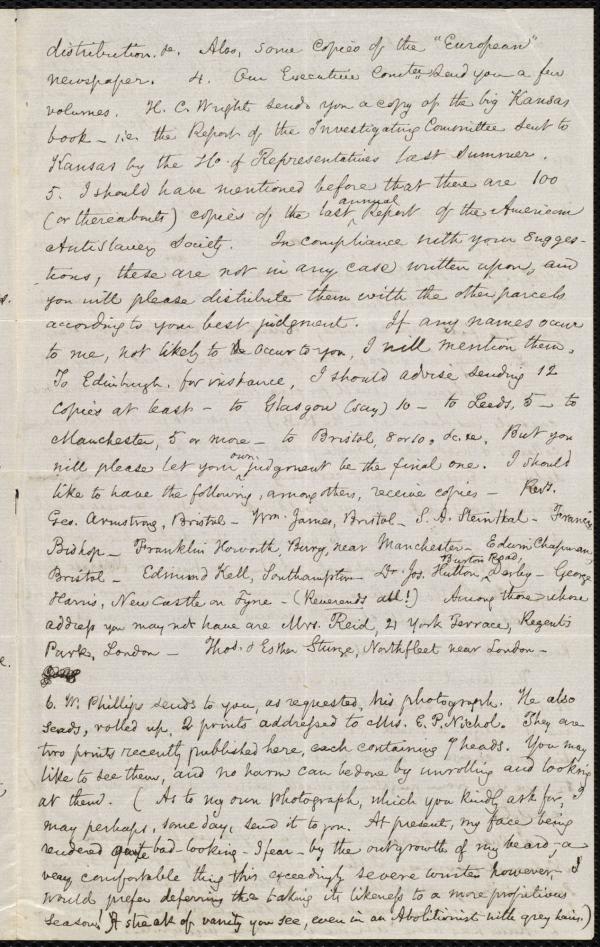 distribution. &c. Also, some copies of the "European"
newspaper. 4. Our Executive Comtee. send you a few
volumes. H. C. Wright sends you a copy of the big Kansas
book - i.e. the Report of the Investigating Committee sent to
Kansas by the Ho. of Representatives last summer.
5. I should have mentioned before that there are 100
(or thereabouts) copies of the last annual Report of the American
Antislavery Society. In compliance with your sugges-
tions, these are not in any case written upon, and
you will please distribute them with the other parcels
according to your best judgment. If any names occur
to me, not likely to occur to you, I will mention them.
To Edinburgh, for instance, I should advise sending 12
copies at least - to Glasgow (say) 10 - to Leeds, 5 - to
Manchester, 5 or more - to Bristol, 8 or 10, &c. &c. But you
will please let your own judgment be the final one. I should
like to have the following, among others, receive copies - Revds.
Geo. Armstrong, Bristol - Wm. James, Bristol - S. A. Steinthal - Francis
Bishop - Franklin Howorth, Bury, near Manchester - Edwin Chapman,
Bristol - Edmund Kell, Southampton - Dr. Jos. Hutton, Burton Road, Derby - George
Harris, New Castle on Tyne - (Reverends all!) Among those whose
address you may not have are Mrs. Reid, 21 York Terrace, Regent's
Park, London - Thos. & Esther Sturge, Northfleet near London -
6. W. Phillips sends to you, as requested, his photograph. He also
sends, rolled up, 2 prints addressed to Mrs. E. P. Nichol. They are
two prints recently published here, each containing 7 heads. You may
like to see them, and no harm can be done by unrolling and looking
at them. (As to my own photograph, which you kindly ask for, I
may perhaps, some day, send it to you. At present, my face being
rendered quite bad-looking - I fear - by the outgrowth of my beard, - a
very comfortable thing this exceedingly severe winter however - I
would prefer deferring the taking its likeness to a more propitious
season! A streak of vanity you see, even in an Abolitionist with grey hairs.)